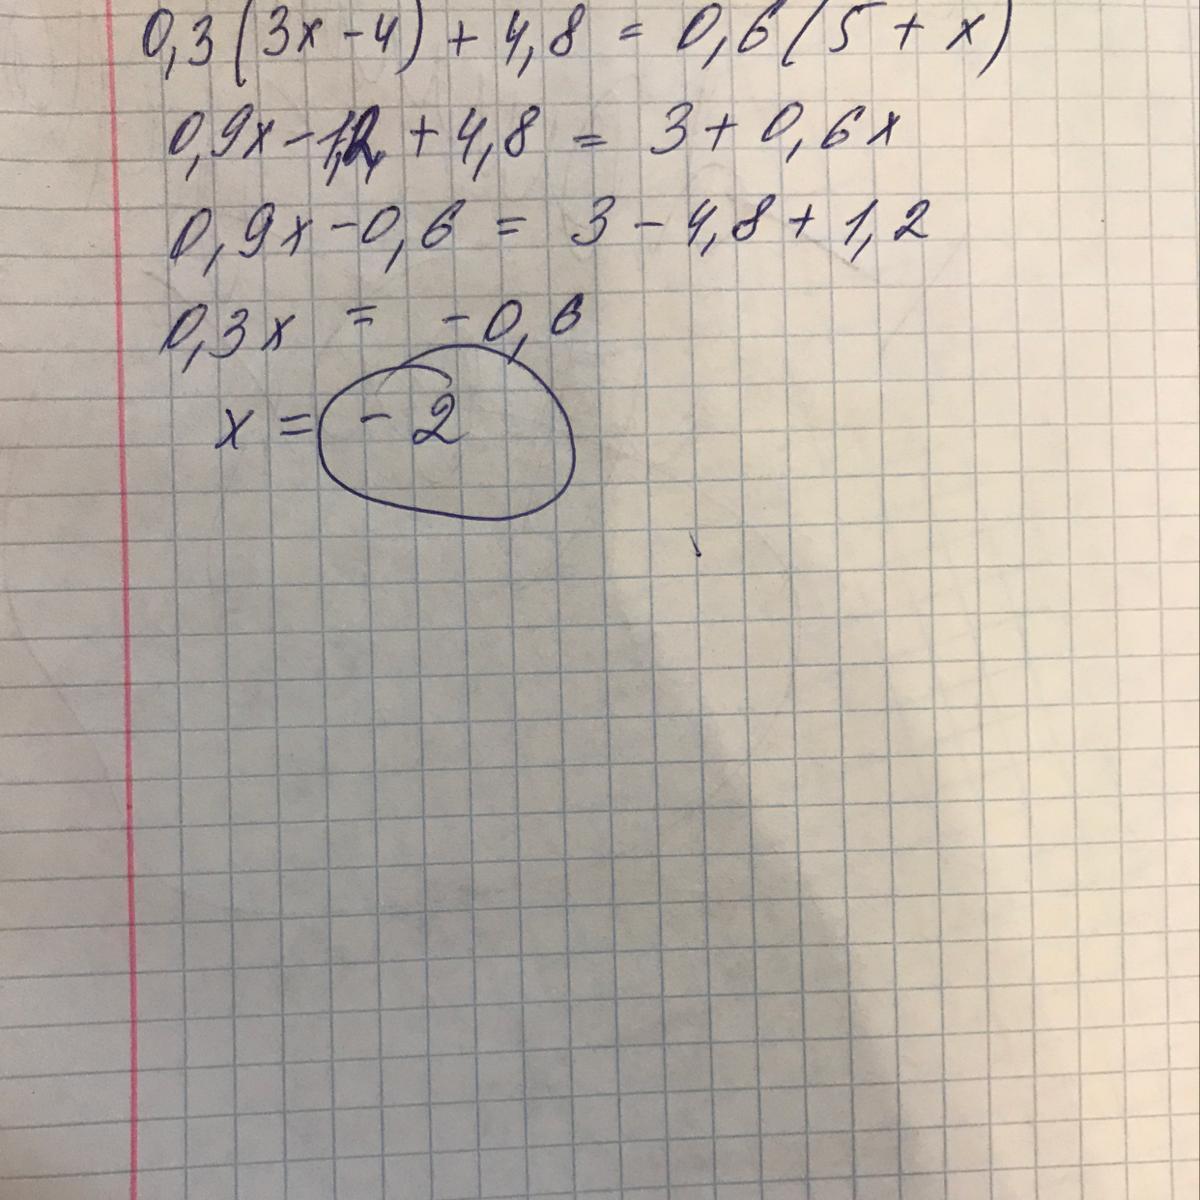 0,3(3x-4) + 4,8 = 0,6(5 + x)
0,9x - 1,2 + 4,8 = 3 + 0,6x
0,9x - 0,6 = 3 - 4,8 + 1,2
0,3x = -0,6
x = -2